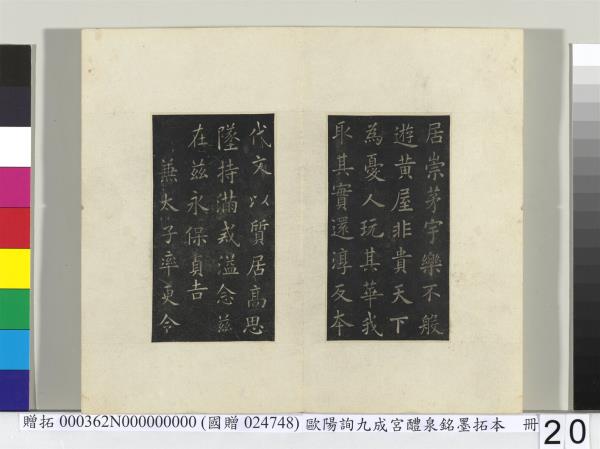 居崇茅宇樂不般
遊黃屋非貴天下
為憂人玩其華我
取其實還淳反本
代文以質居高思
墜持滿戒溢念茲
在茲永保貞吉
兼太子率更令
贈拓 000362N000000000 (國贈 024748) 歐陽詢九成宮醴泉銘墨拓本 冊
20